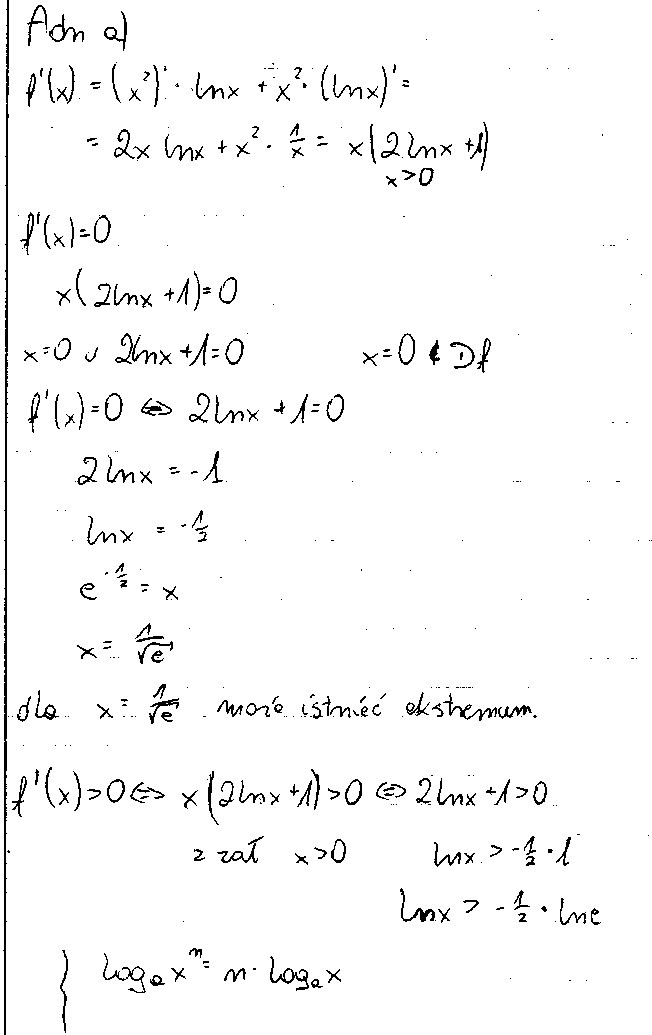 Adn a)
f'(x) = (x²)' · lnx + x² · (lnx)' =
= 2x lnx + x² · 1/x = x(2lnx + 1)
x>0
f'(x)=0
x(2lnx +1)=0
x=0 ∪ 2lnx+1=0 x=0 ∉ Df
f'(x)=0 ⇔ 2lnx + 1=0
2lnx = -1
lnx = -1/2
e^(-1/2) = x
x = 1/√e
dla x = 1/√e może istnieć ekstremum.
f'(x)>0 ⇔ x(2lnx+1)>0 ⇔ 2lnx+1>0
z zał x>0 lnx > -1/2 · 1
lnx > -1/2 · lne
{ logₐxⁿ = n · logₐx